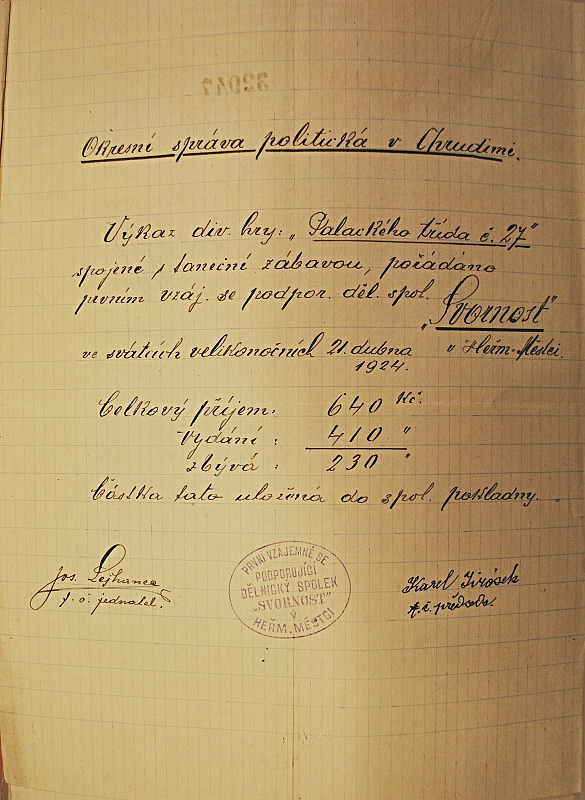 32947
Okresní správa politická v Chrudimi.
Výkaz div. hry: „Palackého třída č. 27"
spojené s taneční zábavou, pořádáno
prvním vzáj. se podpor. děl. spol.
„Svornost"
ve svátcích velikonočních 21. dubna v Heřm. Městci.
1924.
Celkový příjem: 640 Kč.
Vydání: 410 "
zbývá: 230 "
Částka tato uložená do spol. pokladny.
Jos.
t. č. jednatel.
PRVNÍ VZÁJEMNĚ SE
PODPORUJÍCÍ
DĚLNICKÝ SPOLEK
„SVORNOST"
V
HEŘM. MĚSTCI
Karel
t. č. předseda.